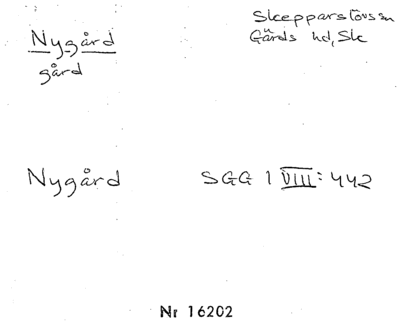 Nygård
gård
Skepparslövs sn
Gärds hd, Sk
Nygård SGG 1 VIII: 442
Nr 16202